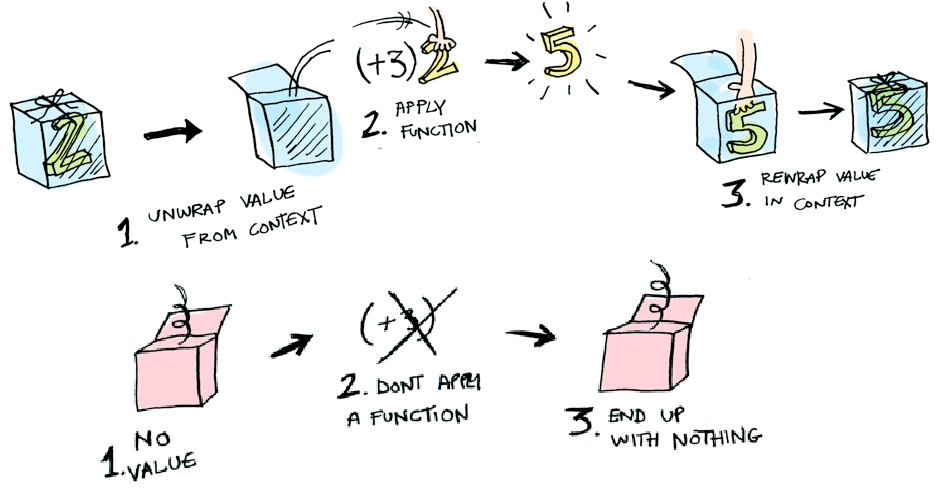 2
(+3) 2
5
5
5
1. UNWRAP VALUE
FROM CONTEXT
2. APPLY
FUNCTION
3. REWRAP VALUE
IN CONTEXT
(+3)
1. NO
VALUE
2. DONT APPLY
A FUNCTION
3. END UP
WITH NOTHING